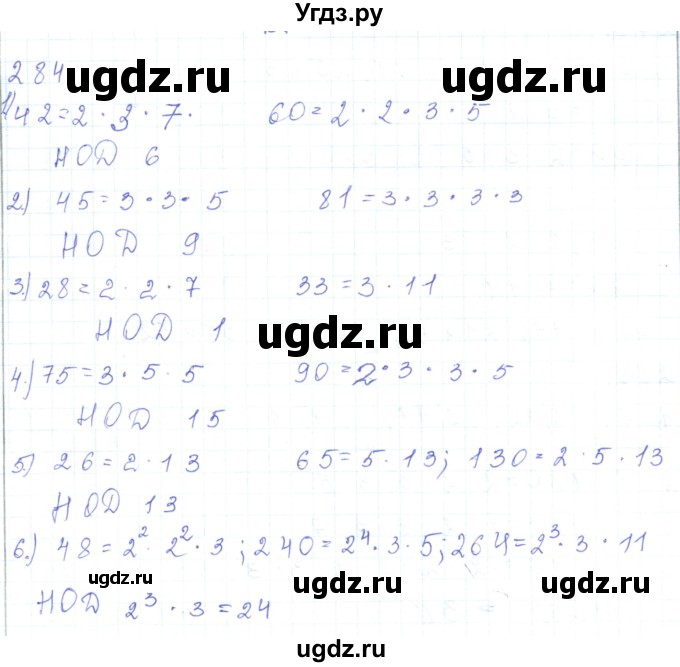 Угдз.ру
284
ugdz.ru ugdz.ru
1) 42=2·3·7. 60=2·2·3·5
НОД 6
2) 45=3·3·5 81=3·3·3·3
НОД 9
3.) 28=2·2·7 33=3·11
НОД 1
ugdz.ru
4.) 75=3·5·5 90=2·3·3·5
НОД 15
5.) 26=2·13 65=5·13; 130=2·5·13
НОД 13
6.) 48=2²·2²·3; 240=2⁴·3·5; 264=2³·3·11
ugdz.ru ugdz.ru
НОД 2³·3=24
ugdz.ru
ugdz.ru